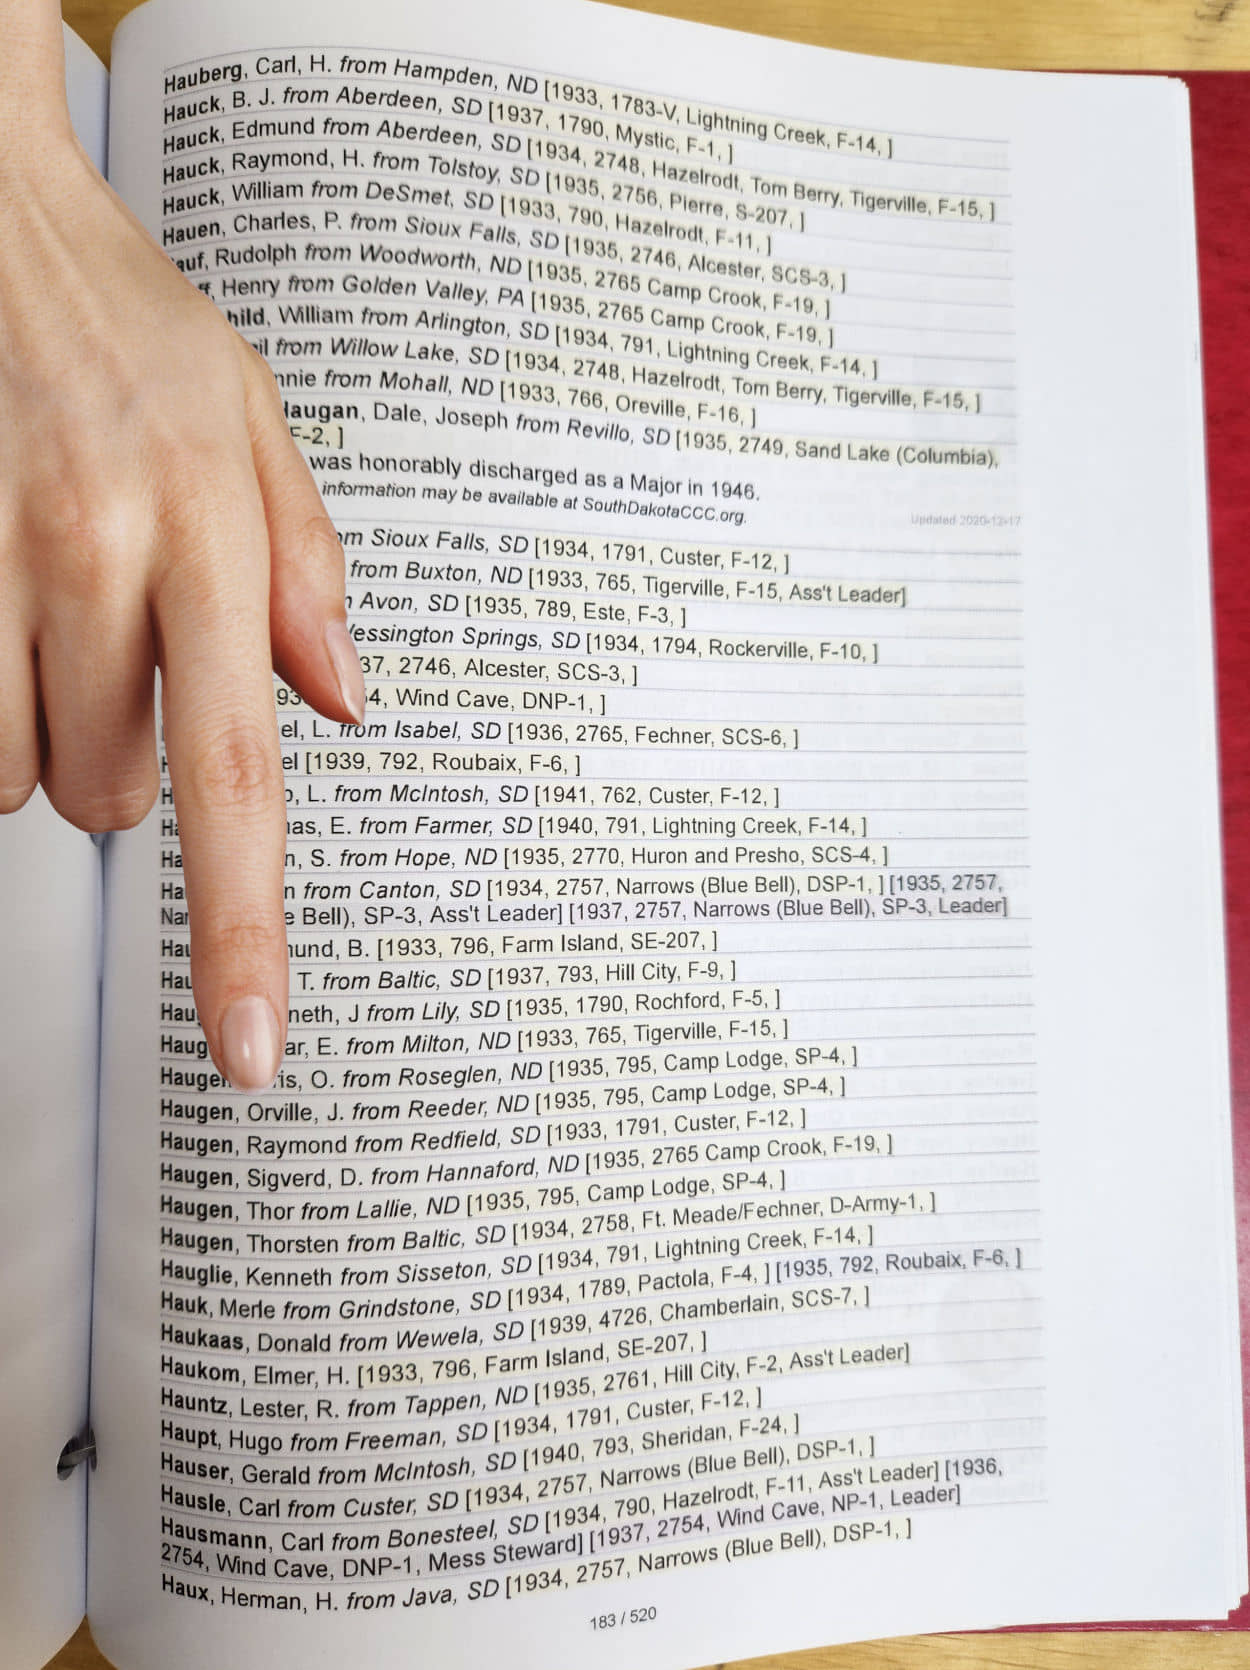 Hauberg, Carl, H. from Hampden, ND [1933, 1783-V, Lightning Creek, F-14, ]
Hauck, B. J. from Aberdeen, SD [1937, 1790, Mystic, F-1, ]
Hauck, Edmund from Aberdeen, SD [1934, 2748, Hazelrodt, Tom Berry, Tigerville, F-15, ]
Hauck, Raymond, H. from Tolstoy, SD [1935, 2756, Pierre, S-207, ]
Hauck, William from DeSmet, SD [1933, 790, Hazelrodt, F-11, ]
Hauen, Charles, P. from Sioux Falls, SD [1935, 2746, Alcester, SCS-3, ]
Rudolph from Woodworth, ND [1935, 2765 Camp Crook, F-19, ]
Henry from Golden Valley, PA [1935, 2765 Camp Crook, F-19, ]
William from Arlington, SD [1934, 791, Lightning Creek, F-14, ]
from Willow Lake, SD [1934, 2748, Hazelrodt, Tom Berry, Tigerville, F-15, ]
from Mohall, ND [1933, 766, Oreville, F-16, ]
Haugan, Dale, Joseph from Revillo, SD [1935, 2749, Sand Lake (Columbia),
F-2, ]
was honorably discharged as a Major in 1946.
information may be available at SouthDakotaCCC.org.
Updated 2020-12-17
Sioux Falls, SD [1934, 1791, Custer, F-12, ]
from Buxton, ND [1933, 765, Tigerville, F-15, Ass't Leader]
Avon, SD [1935, 789, Este, F-3, ]
Wessington Springs, SD [1934, 1794, Rockerville, F-10, ]
2746, Alcester, SCS-3, ]
Wind Cave, DNP-1, ]
L. from Isabel, SD [1936, 2765, Fechner, SCS-6, ]
[1939, 792, Roubaix, F-6, ]
L. from McIntosh, SD [1941, 762, Custer, F-12, ]
E. from Farmer, SD [1940, 791, Lightning Creek, F-14, ]
S. from Hope, ND [1935, 2770, Huron and Presho, SCS-4, ]
from Canton, SD [1934, 2757, Narrows (Blue Bell), DSP-1, ] [1935, 2757,
Bell), SP-3, Ass't Leader] [1937, 2757, Narrows (Blue Bell), SP-3, Leader]
B. [1933, 796, Farm Island, SE-207, ]
T. from Baltic, SD [1937, 793, Hill City, F-9, ]
J from Lily, SD [1935, 1790, Rochford, F-5, ]
E. from Milton, ND [1933, 765, Tigerville, F-15, ]
Haugen, O. from Roseglen, ND [1935, 795, Camp Lodge, SP-4, ]
Haugen, Orville, J. from Reeder, ND [1935, 795, Camp Lodge, SP-4, ]
Haugen, Raymond from Redfield, SD [1933, 1791, Custer, F-12, ]
Haugen, Sigverd, D. from Hannaford, ND [1935, 2765 Camp Crook, F-19, ]
Haugen, Thor from Lallie, ND [1935, 795, Camp Lodge, SP-4, ]
Haugen, Thorsten from Baltic, SD [1934, 2758, Ft. Meade/Fechner, D-Army-1, ]
Hauglie, Kenneth from Sisseton, SD [1934, 791, Lightning Creek, F-14, ]
Hauk, Merle from Grindstone, SD [1934, 1789, Pactola, F-4, ] [1935, 792, Roubaix, F-6, ]
Haukaas, Donald from Wewela, SD [1939, 4726, Chamberlain, SCS-7, ]
Haukom, Elmer, H. [1933, 796, Farm Island, SE-207, ]
Hauntz, Lester, R. from Tappen, ND [1935, 2761, Hill City, F-2, Ass't Leader]
Haupt, Hugo from Freeman, SD [1934, 1791, Custer, F-12, ]
Hauser, Gerald from McIntosh, SD [1940, 793, Sheridan, F-24, ]
Hausle, Carl from Custer, SD [1934, 2757, Narrows (Blue Bell), DSP-1, ]
Hausmann, Carl from Bonesteel, SD [1934, 790, Hazelrodt, F-11, Ass't Leader] [1936,
2754, Wind Cave, DNP-1, Mess Steward] [1937, 2754, Wind Cave, NP-1, Leader]
Haux, Herman, H. from Java, SD [1934, 2757, Narrows (Blue Bell), DSP-1, ]
183 / 520